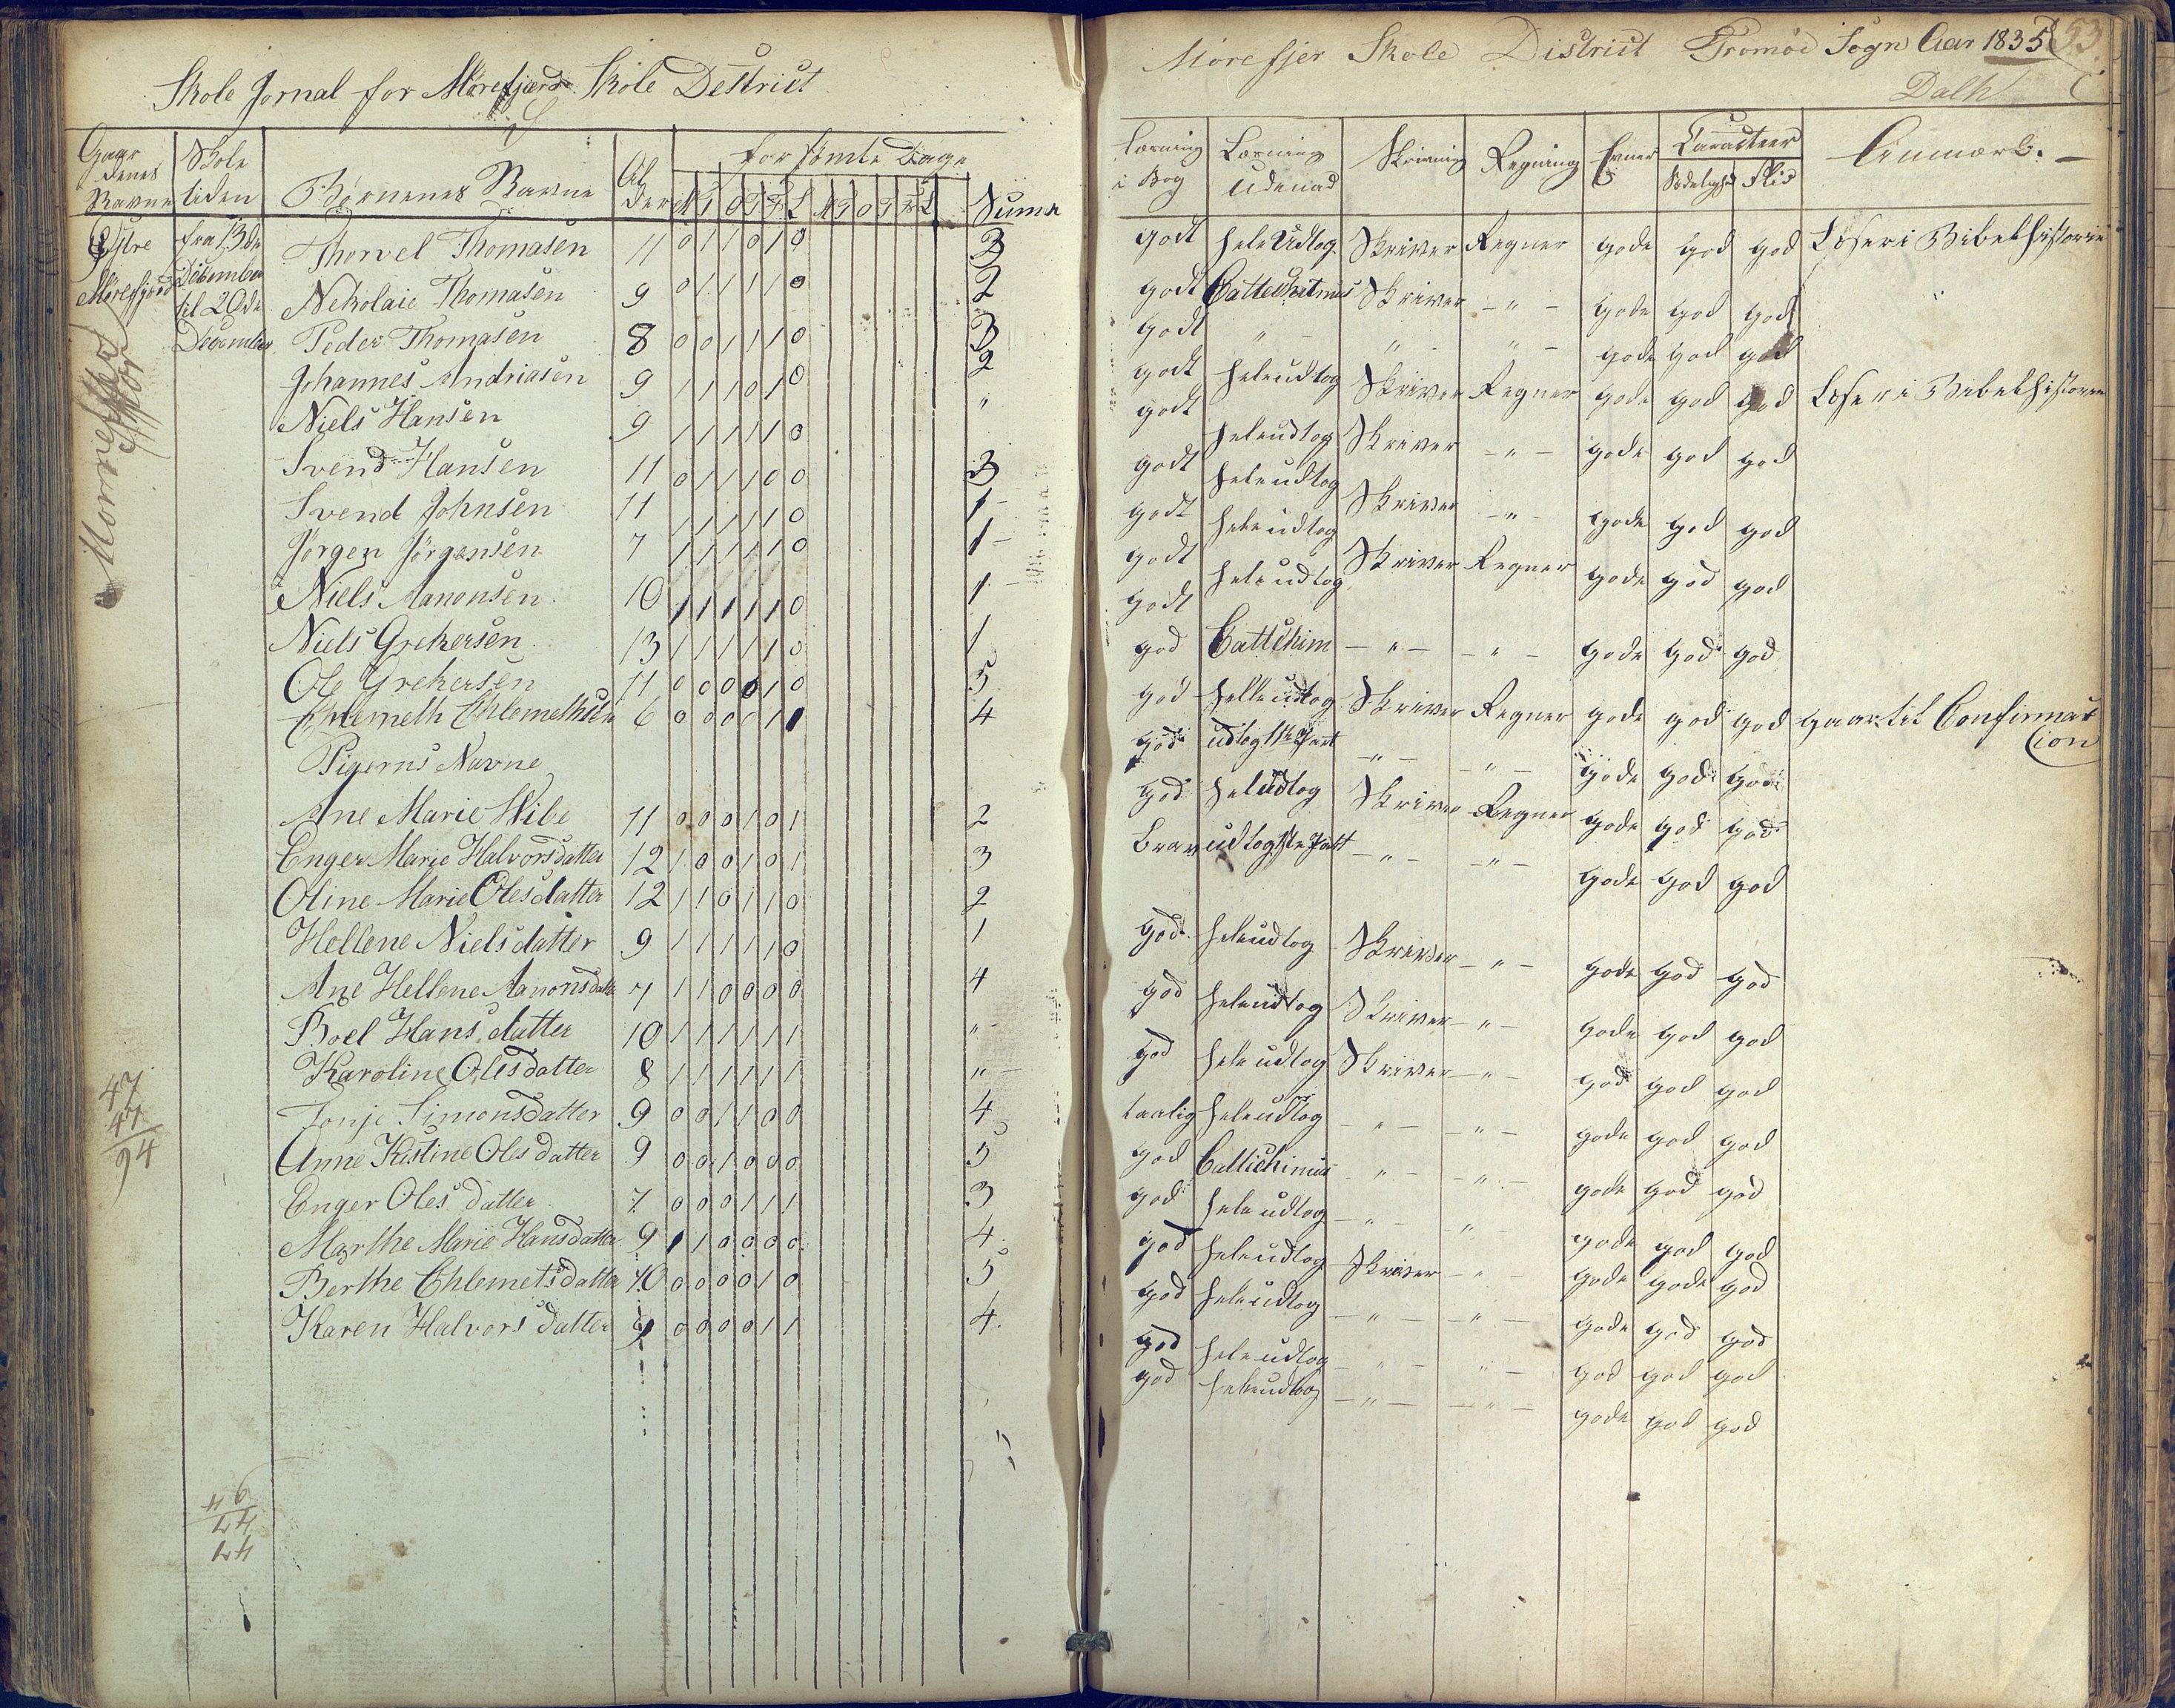 Skole Jornal for Mörefjærs Skole Destrict
Gaardenes Navne Skole tiden Børnenes Navne Alder forsömte Dage Suma
M T O T F L M T O T F L
Östre Mörefjærd fra 13de December til 20de December
Thorvel Thomasen 11 0 1 1 0 1 0 3
Nekolaie Thomasen 9 0 1 1 1 1 0 2
Peder Thomasen 8 0 0 1 1 1 0 3
Johannes Andriasen 9 1 1 1 0 1 0 2
Niels Hansen 9 1 1 1 1 1 0 "
Svend Hansen 11 0 1 1 1 0 0 3
Svend Johnsen 11 1 1 1 1 1 0 1 -
Jörgen Jörgensen 7 1 1 1 1 1 0 1 -
Niels Aanonsen 10 1 1 1 1 1 0 1
Niels Grekersen 13 1 1 1 1 1 0 1
Ole Grekersen 11 0 0 0 0 1 0 5
Ehlemeth Ehlemethsen 6 0 0 0 0 1 1 4
Pigerns Navne
Ane Marie Wibe 11 0 0 0 1 0 1 2
Enger Marie Halvorsdatter 12 1 0 0 1 0 1 3
Oline Marie Olesdatter 12 1 1 0 1 1 0 2
Hellene Nielsdatter 9 1 1 1 1 1 0 1
Ane Hellene Aanonsdatter 7 1 1 0 0 0 0 4
Boel Hans datter 10 1 1 1 1 1 1 " -
Karoline Olesdatter 8 1 1 1 1 1 1 " -
Tonje Simonsdatter 9 0 0 1 1 0 0 4
Anne Kistine Oles datter 9 0 0 1 0 0 0 5
Enger Oles datter 7 0 0 0 1 1 1 3
Marthe Marie Hansdatter 9 1 1 0 0 0 0 4
Berthe Ehlemetsdatter 10 0 0 0 0 1 0 5
Karen Halvors datter 9 0 0 0 0 1 1 4.
47
47
94
Mörefjer Skole District Tromöe Sogn Aar 1835 53
Dalh
Læsning i Bog Læsning udenad Skrivning Regning Evner Caracteer Anmærk. -
Sædelighed Flid
godt hele Udtog Skriver Regner gode god god Læser i Bibelhistorie
godt Cattechitmus Skriver - " - gode god god
godt " - " - " - gode god god
godt heleudtog Skriver Regner gode god god Læser i Bibelhistorien
godt heleudtog Skriver - " - gode god god
godt heleudtog Skriver - " - gode god god
godt heleudtog Skriver Regner gode god god
godt heleudtog
godt
god Cattchim - " - - " - gode god god
god helleudtog Skriver Regner gode god god gaar til Confirmat
cion
god udtog 1ste Part - " - - " - gode god god
god heludtog Skriver Regner gode god god
Brav udtog 1ste Patt - " - - " - gode god god
god heleudtog Skriver - " - gode god god
god heleudtog Skriver - " - gode god god
god hele udtog Skriver - " - god god god
taalig heleudtog - " - - " - gode god god
god Cattichimus " - - " - gode god god
god hele udtog - " - " - gode god god
god heleudtog Skriver - " - gode gode god
god heleudtog - " - - " - gode god god
god heleudtog - " - " - god god god
god heleudtog - " - - " - gode god god